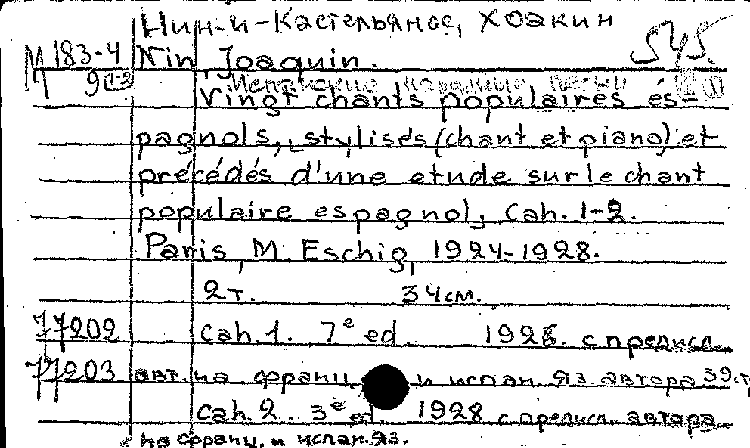 Нин-и-Кастельянос, Хоакин
М 183-4 Nin, Joaquin. 545.
Испанские народные песни
Vingt chants populaires es-
pagnols, stylisés (chant et piano) et
précédés d'une etude sur le chant
populaire espagnol, Cah. 1-2.
Paris, M. Eschig, 1924-1928.
2т. 34см.
77202 Cah. 1. 7e ed. 1928. с предисл.
77203 авт. на франц. и испан. яз. автора 39.
Cah. 2. 3e ed. 1928 с предисл. автора
на франц. и испан. яз.